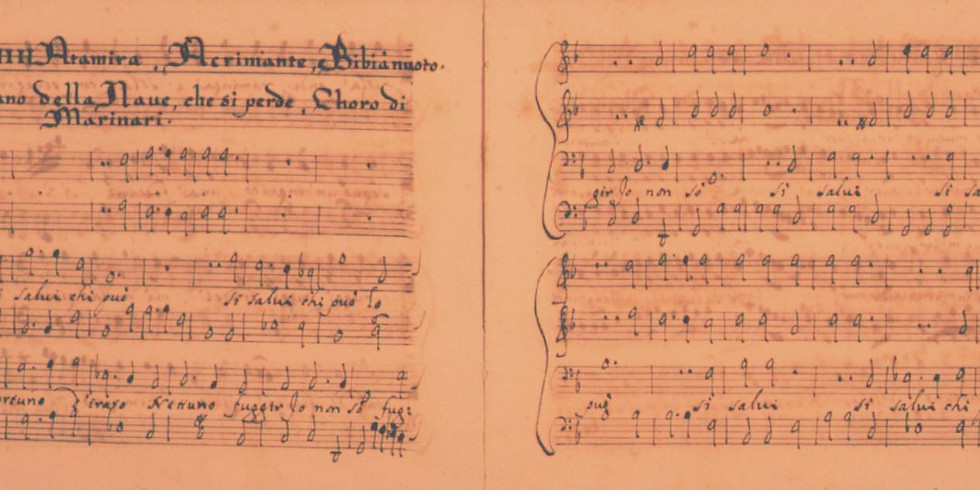 Atamira, Acrimante, Bibi à nuoto.
della Naue, che si perde, Choro di
Marinari.
salui chi può si salui chi può Jo
irato Nettuno fuggir Jo non sò fug:
gir Jo non sò si salui si
può si salui si salui chi